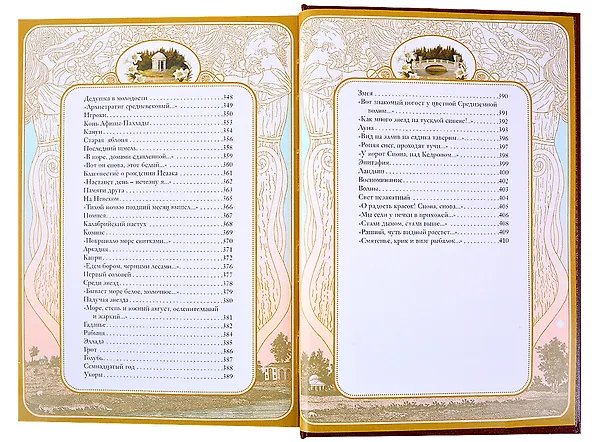 Дедушка в молодости ..... 348
«Архистратиг средневековый...» ..... 349
Игроки ..... 350
Конь Афины-Паллады ..... 353
Канун ..... 354
Старая яблоня ..... 356
Последний шмель ..... 358
«В норе, домами сдавленной...» ..... 359
«Вот он снова, этот белый...» ..... 360
Благовестие о рождении Исаака ..... 361
«Настанет день – исчезну я...» ..... 362
Памяти друга ..... 363
На Невском ..... 365
«Тихой ночью поздний месяц вышел...» ..... 366
Помпея ..... 367
Калабрийский пастух ..... 368
Компас ..... 369
«Покрывало море свитками...» ..... 370
Аркадия ..... 371
Капри ..... 372
«Едем бором, черными лесами...» ..... 376
Первый соловей ..... 377
Среди звезд ..... 378
«Бывает море белое, молочное...» ..... 379
Падучая звезда ..... 380
«Море, степь и южный август, ослепительный
и жаркий...» ..... 381
Гаданье ..... 382
Рабыня ..... 384
Эллада ..... 385
Грот ..... 386
Голубь ..... 387
Семнадцатый год ..... 388
Укоры ..... 389
Змея ..... 390
«Вот знакомый погост у цветной Средиземной
волны...» ..... 391
«Как много звезд на тусклой синеве!..» ..... 392
Луна ..... 393
«Вид на залив из садика таверны...» ..... 396
«Роняя снег, проходят тучи...» ..... 397
«У ворот Сиона, над Кедроном...» ..... 398
Эпитафия ..... 399
Ландыш ..... 400
Воспоминание ..... 402
Волны ..... 403
Свет незакатный ..... 404
«О радость красок! Снова, снова...» ..... 405
«Мы сели у печки в прихожей...» ..... 406
«Стали дымом, стали выше...» ..... 408
«Ранний, чуть видный рассвет...» ..... 409
«Смятенье, крик и визг рыбалок...» ..... 410